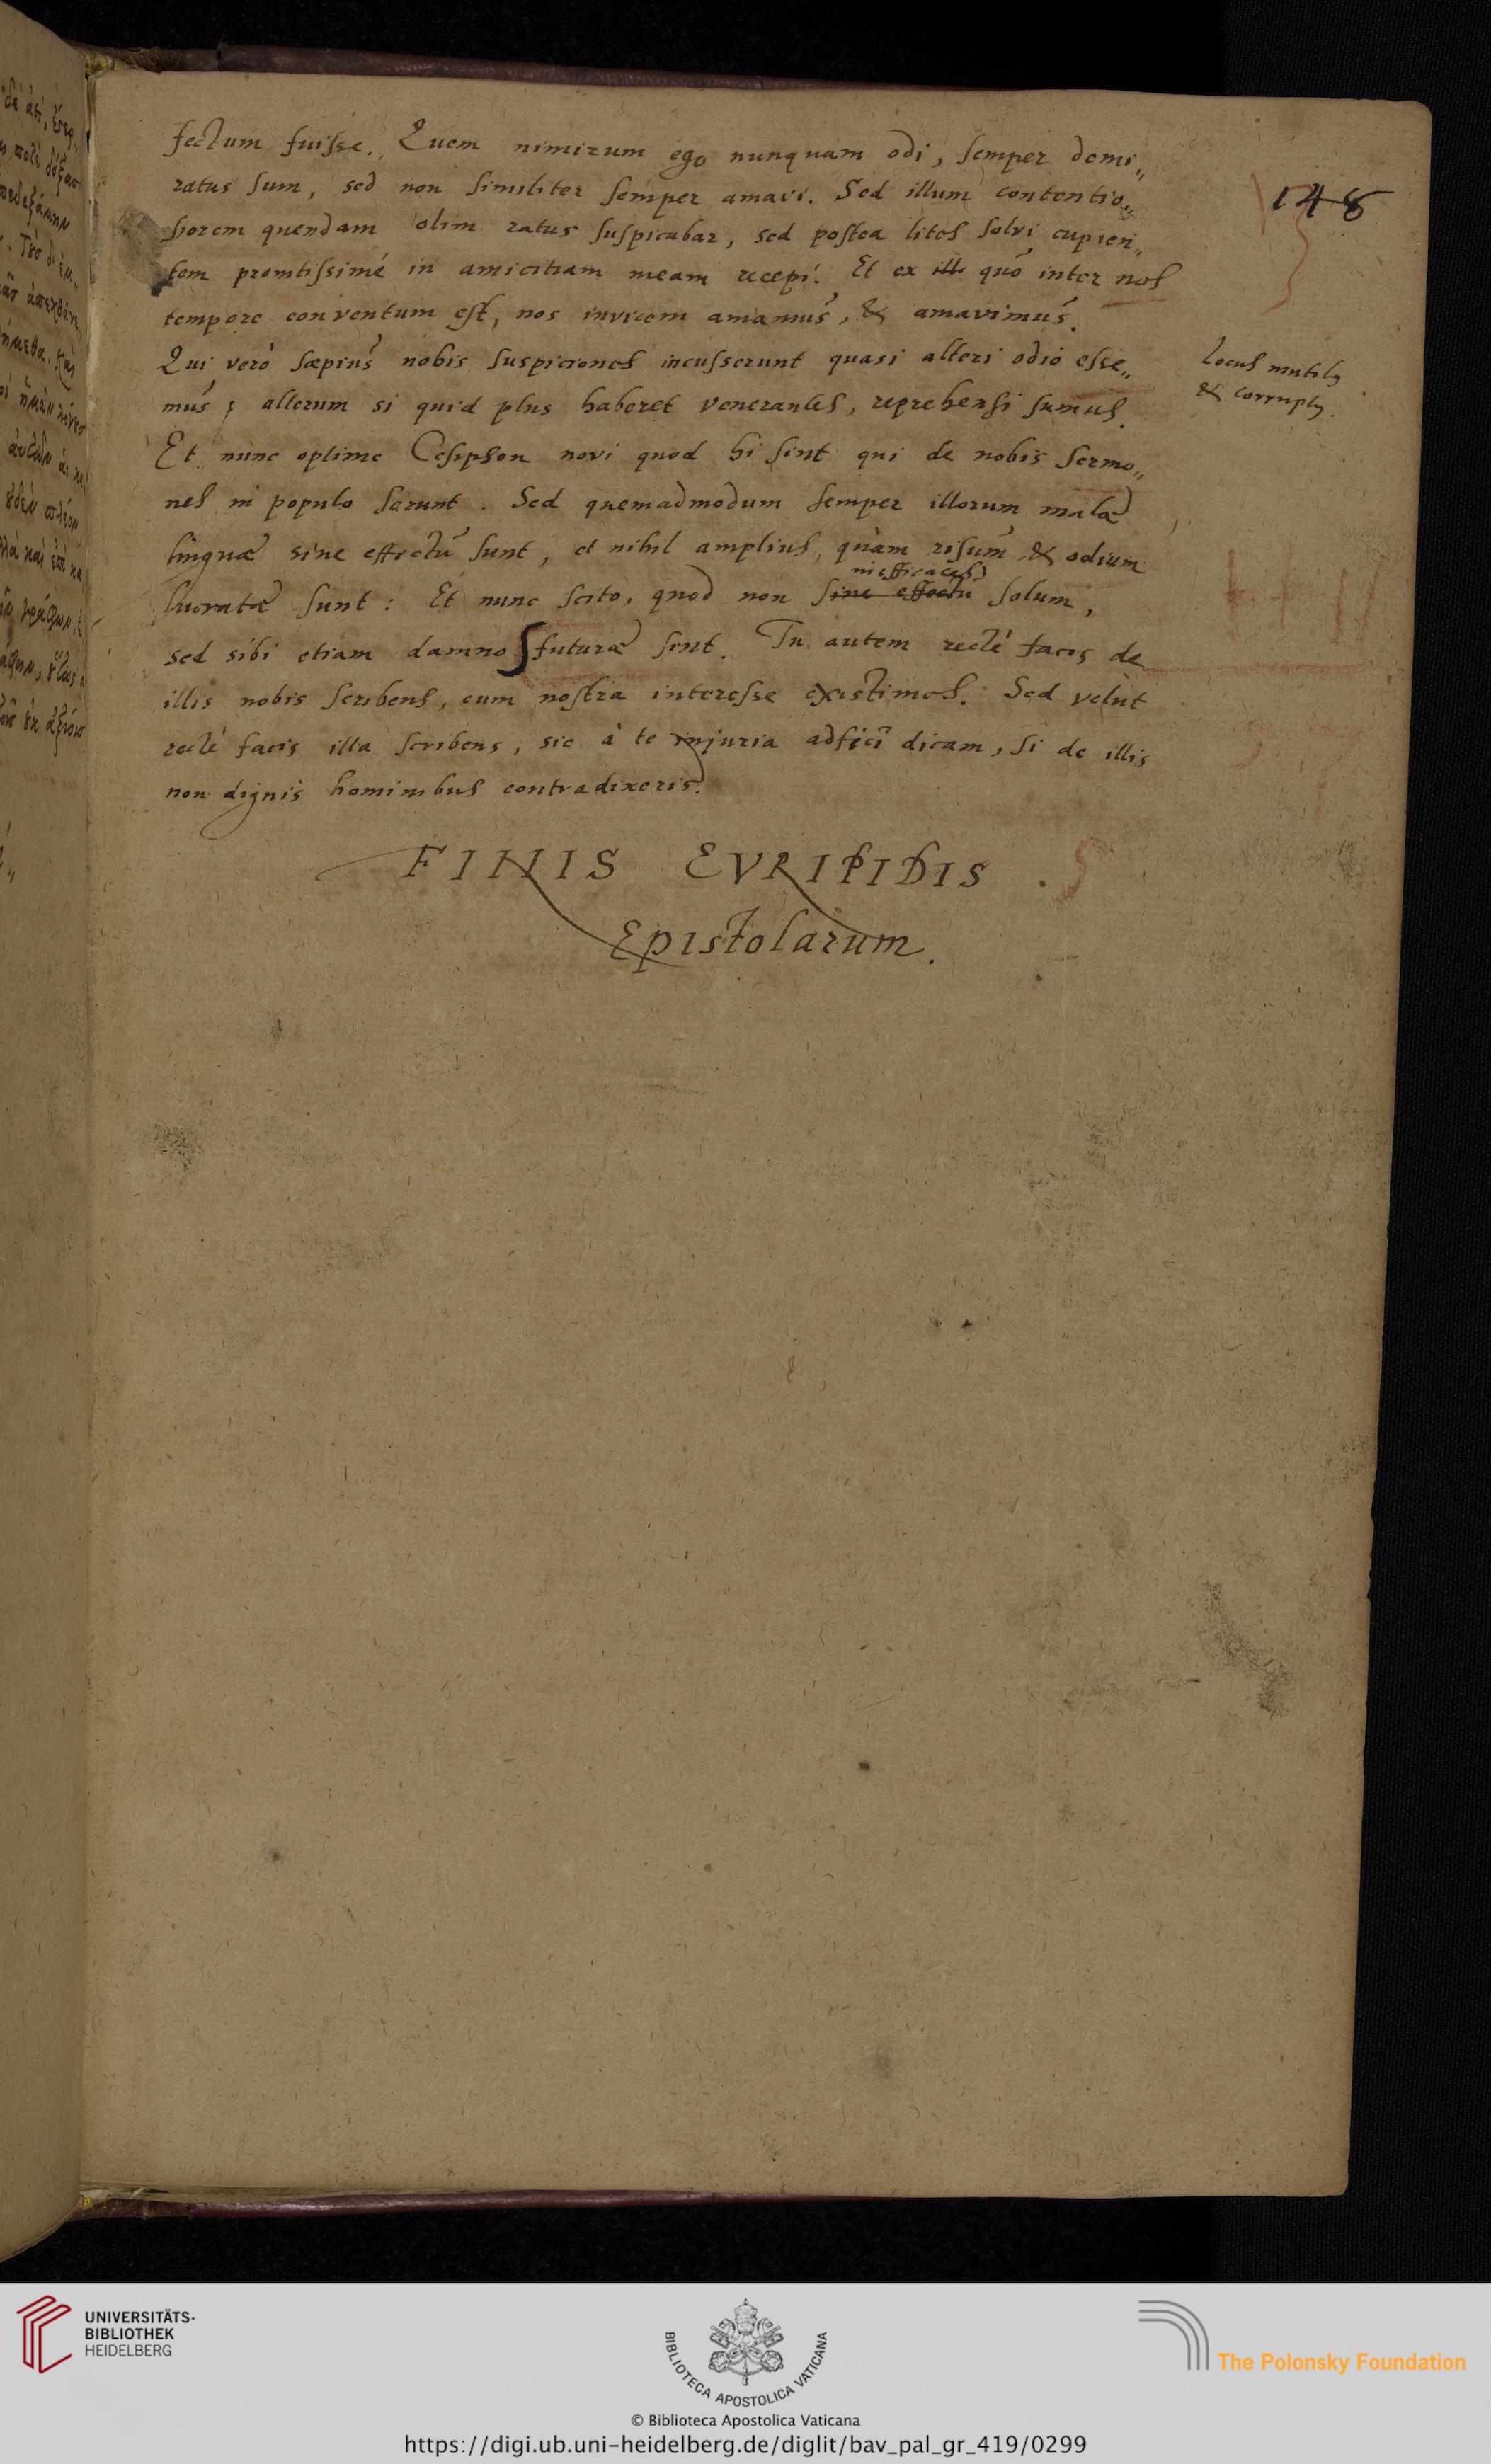 148
fectum fuisse. Quem nimirum ego nunquam odi, semper demi„
ratus sum, sed non similiter semper amavi. Sed illum contentio„
sorem quendam olim ratus suspicabar, sed postea lites solvi cupien„
tem promtissimé in amicitiam meam recepi. Et ex quó inter nos
tempore conventum est, nos invicem amamus, & amavimus.
Qui verò sæpius nobis suspiciones incusserunt quasi alteri odio esse„
mus; alterum si quid plus haberet venerantes, reprehensi sumus.
Locus mutil9
& corrupt9.
Et nunc optime Cesiphon novi quod hi sint qui de nobis sermo„
nes in populo serunt. Sed quemadmodum semper illorum malæ
linguæ sine effectu sunt, et nihil amplius, quàm risum & odium
lucratæ sunt: Et nunc scito, quod non sine effectu inefficaces solum,
sed sibi etiam damno futuræ sint. Tu autem recté facis de
illis nobis scribens, cum nostra interesse existimes. Sed velut
recté facis illa scribens, sic à te injuria adfici dicam, si de illis
non dignis hominibus contradixeris.
FINIS EVRIPIDIS
Epistolarum.
UNIVERSITÄTS-
BIBLIOTHEK
HEIDELBERG
BIBLIOTECA APOSTOLICA VATICANA
The Polonsky Foundation
© Biblioteca Apostolica Vaticana
https://digi.ub.uni-heidelberg.de/diglit/bav_pal_gr_419/0299